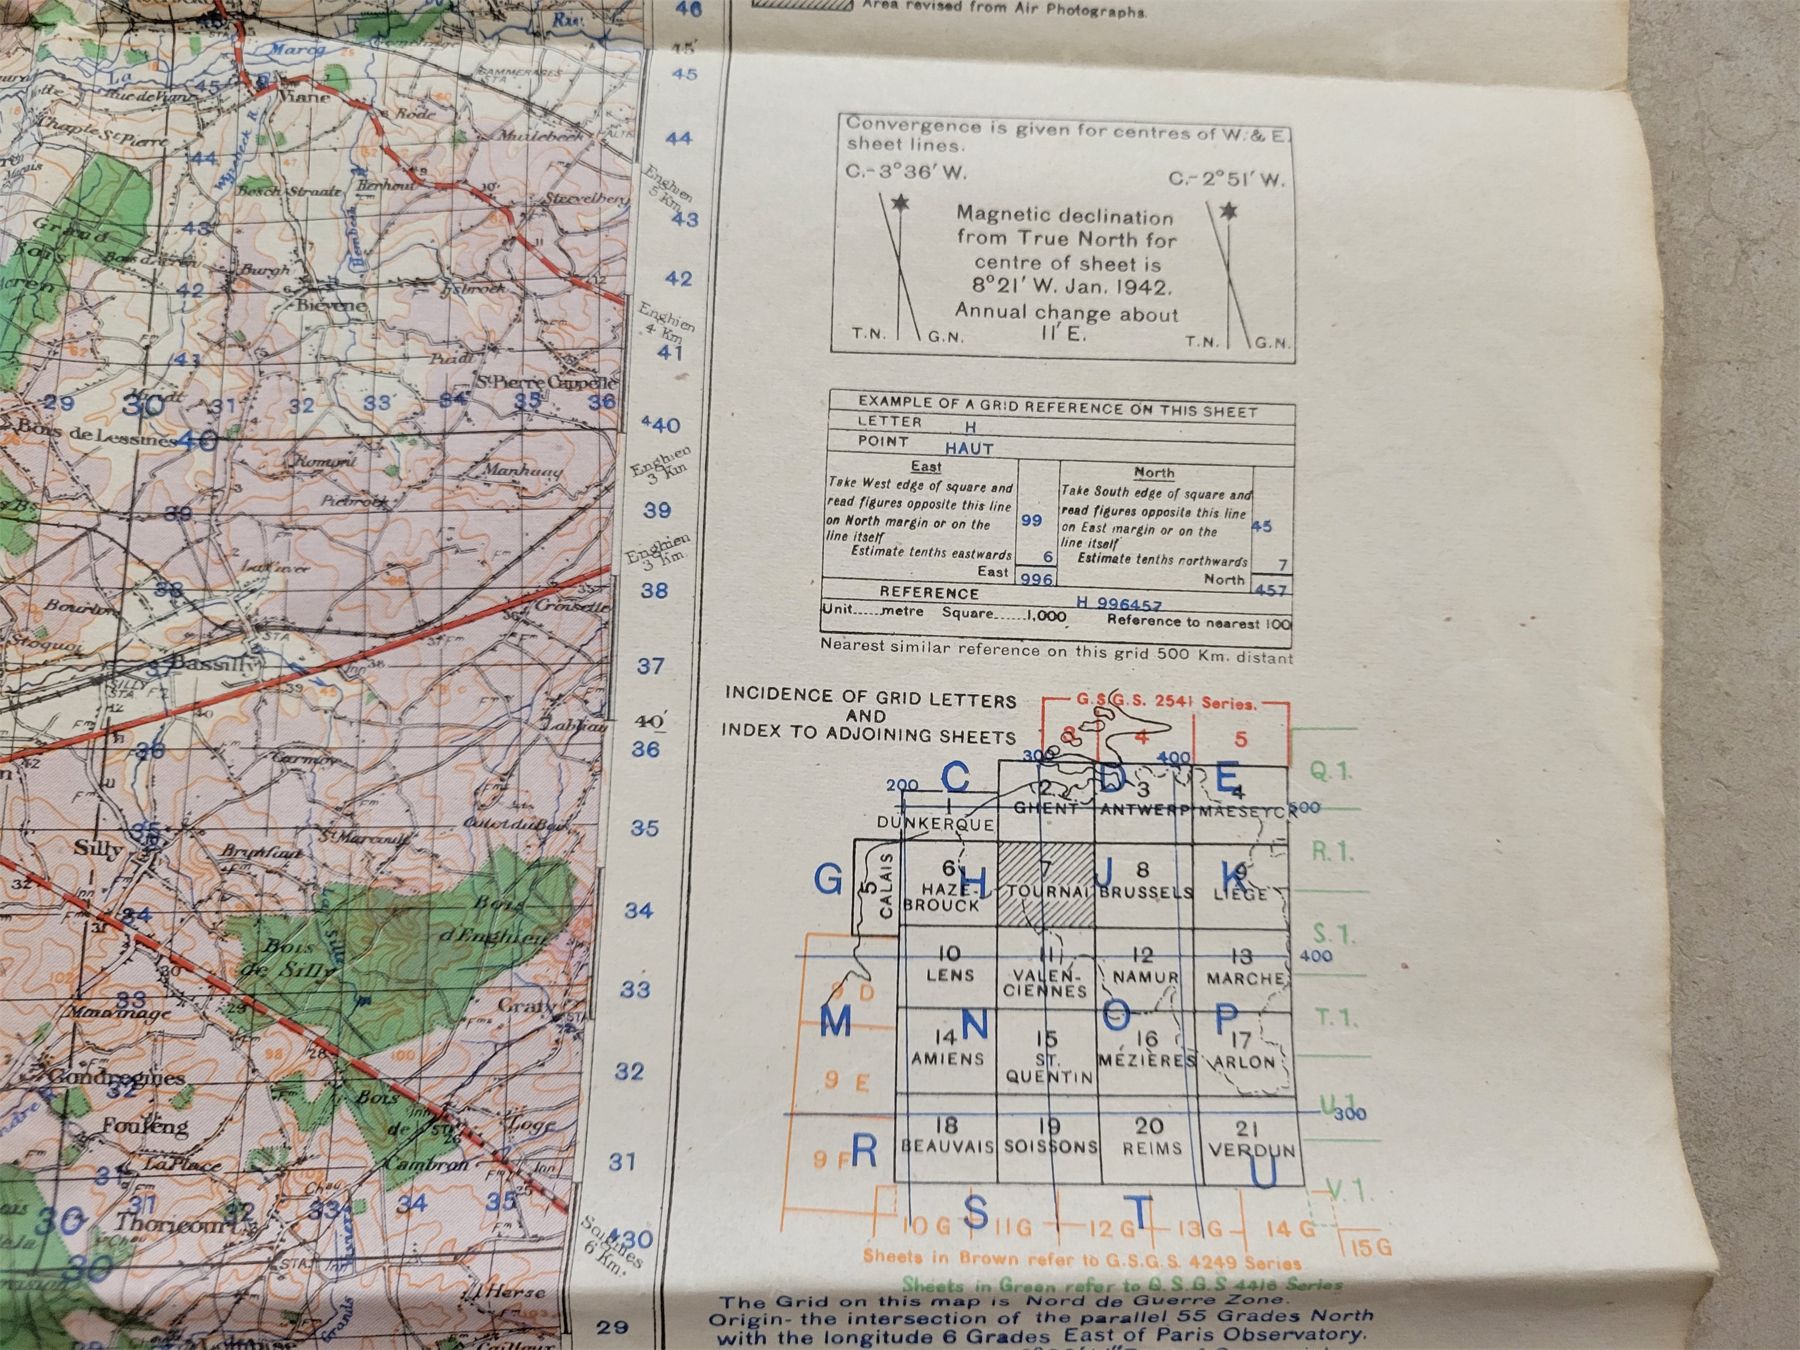 Area revised from Air Photographs.
Convergence is given for centres of W. & E.
sheet lines.
C.-3°36' W.
C.-2°51' W.
Magnetic declination
from True North for
centre of sheet is
8°21' W. Jan. 1942.
Annual change about
11' E.
T.N. G.N.
T.N. G.N.
EXAMPLE OF A GRID REFERENCE ON THIS SHEET
LETTER H
POINT HAUT
East
Take West edge of square and
read figures opposite this line
on North margin or on the
line itself 99
Estimate tenths eastwards 6
East 996
North
Take South edge of square and
read figures opposite this line
on East margin or on the
line itself 45
Estimate tenths northwards 7
North 457
REFERENCE H 996457
Unit.....metre Square......1,000 Reference to nearest 100
Nearest similar reference on this grid 500 Km. distant
INCIDENCE OF GRID LETTERS
AND
INDEX TO ADJOINING SHEETS
G.S.G.S. 2541 Series.
4 5
300 400
200 C D E
1 DUNKERQUE
2 GHENT
3 ANTWERP
4 MAESEYCK
500
Q.1.
R.1.
G H J K
5 CALAIS
6 HAZE-
BROUCK
7 TOURNAI
8 BRUSSELS
9 LIEGE
S.1.
10 LENS
11 VALEN-
CIENNES
12 NAMUR
13 MARCHE
400
9 D
M N O P
T.1.
14 AMIENS
15 ST.
QUENTIN
16 MÉZIÈRES
17 ARLON
9 E
U.1.
300
18 BEAUVAIS
19 SOISSONS
20 REIMS
21 VERDUN
9 F
R S T U
V.1.
10 G 11 G 12 G 13 G 14 G 15 G
Sheets in Brown refer to G.S.G.S. 4249 Series
Sheets in Green refer to G.S.G.S 4416 Series
The Grid on this map is Nord de Guerre Zone.
Origin- the intersection of the parallel 55 Grades North
with the longitude 6 Grades East of Paris Observatory.
46
45'
45
44
Enghien
5 Km
43
42
Enghien
4 Km
41
440
Enghien
3 Km
39
Enghien
3 Km.
38
37
40'
36
35
34
33
32
31
430
Soignies
6 Km.
29
Marcq
La
Viane
Rue de Viane
Chaple St Pierre
Rode
Muzlebeek
GAMMERAGES
STA
45
44
Bosch Straate
Berhout
Stcevelberg
43
Grand
Bois
Acren
Burgh
42
Biévène
41
Puidt
St Pierre Cappelle
29 30 31 32 33 34 35 36
Bois de Lessines
40
Romont
Manhaag
39
38
Croisette
Bourlon
Stoquoi
STA
Bassilly
37
SILLY
STA
Inn
Labliau
36
Carmoy
35
Silly
St Marcoult
34
Bois
de Silly
Bois
d'Enghien
33
Graty
Gondregnies
32
Bois
de
Cambron
Loge
Fouleng
La Place
31
31 32 33 34 35
Chau
Thoricourt
30
30
STA
Herse